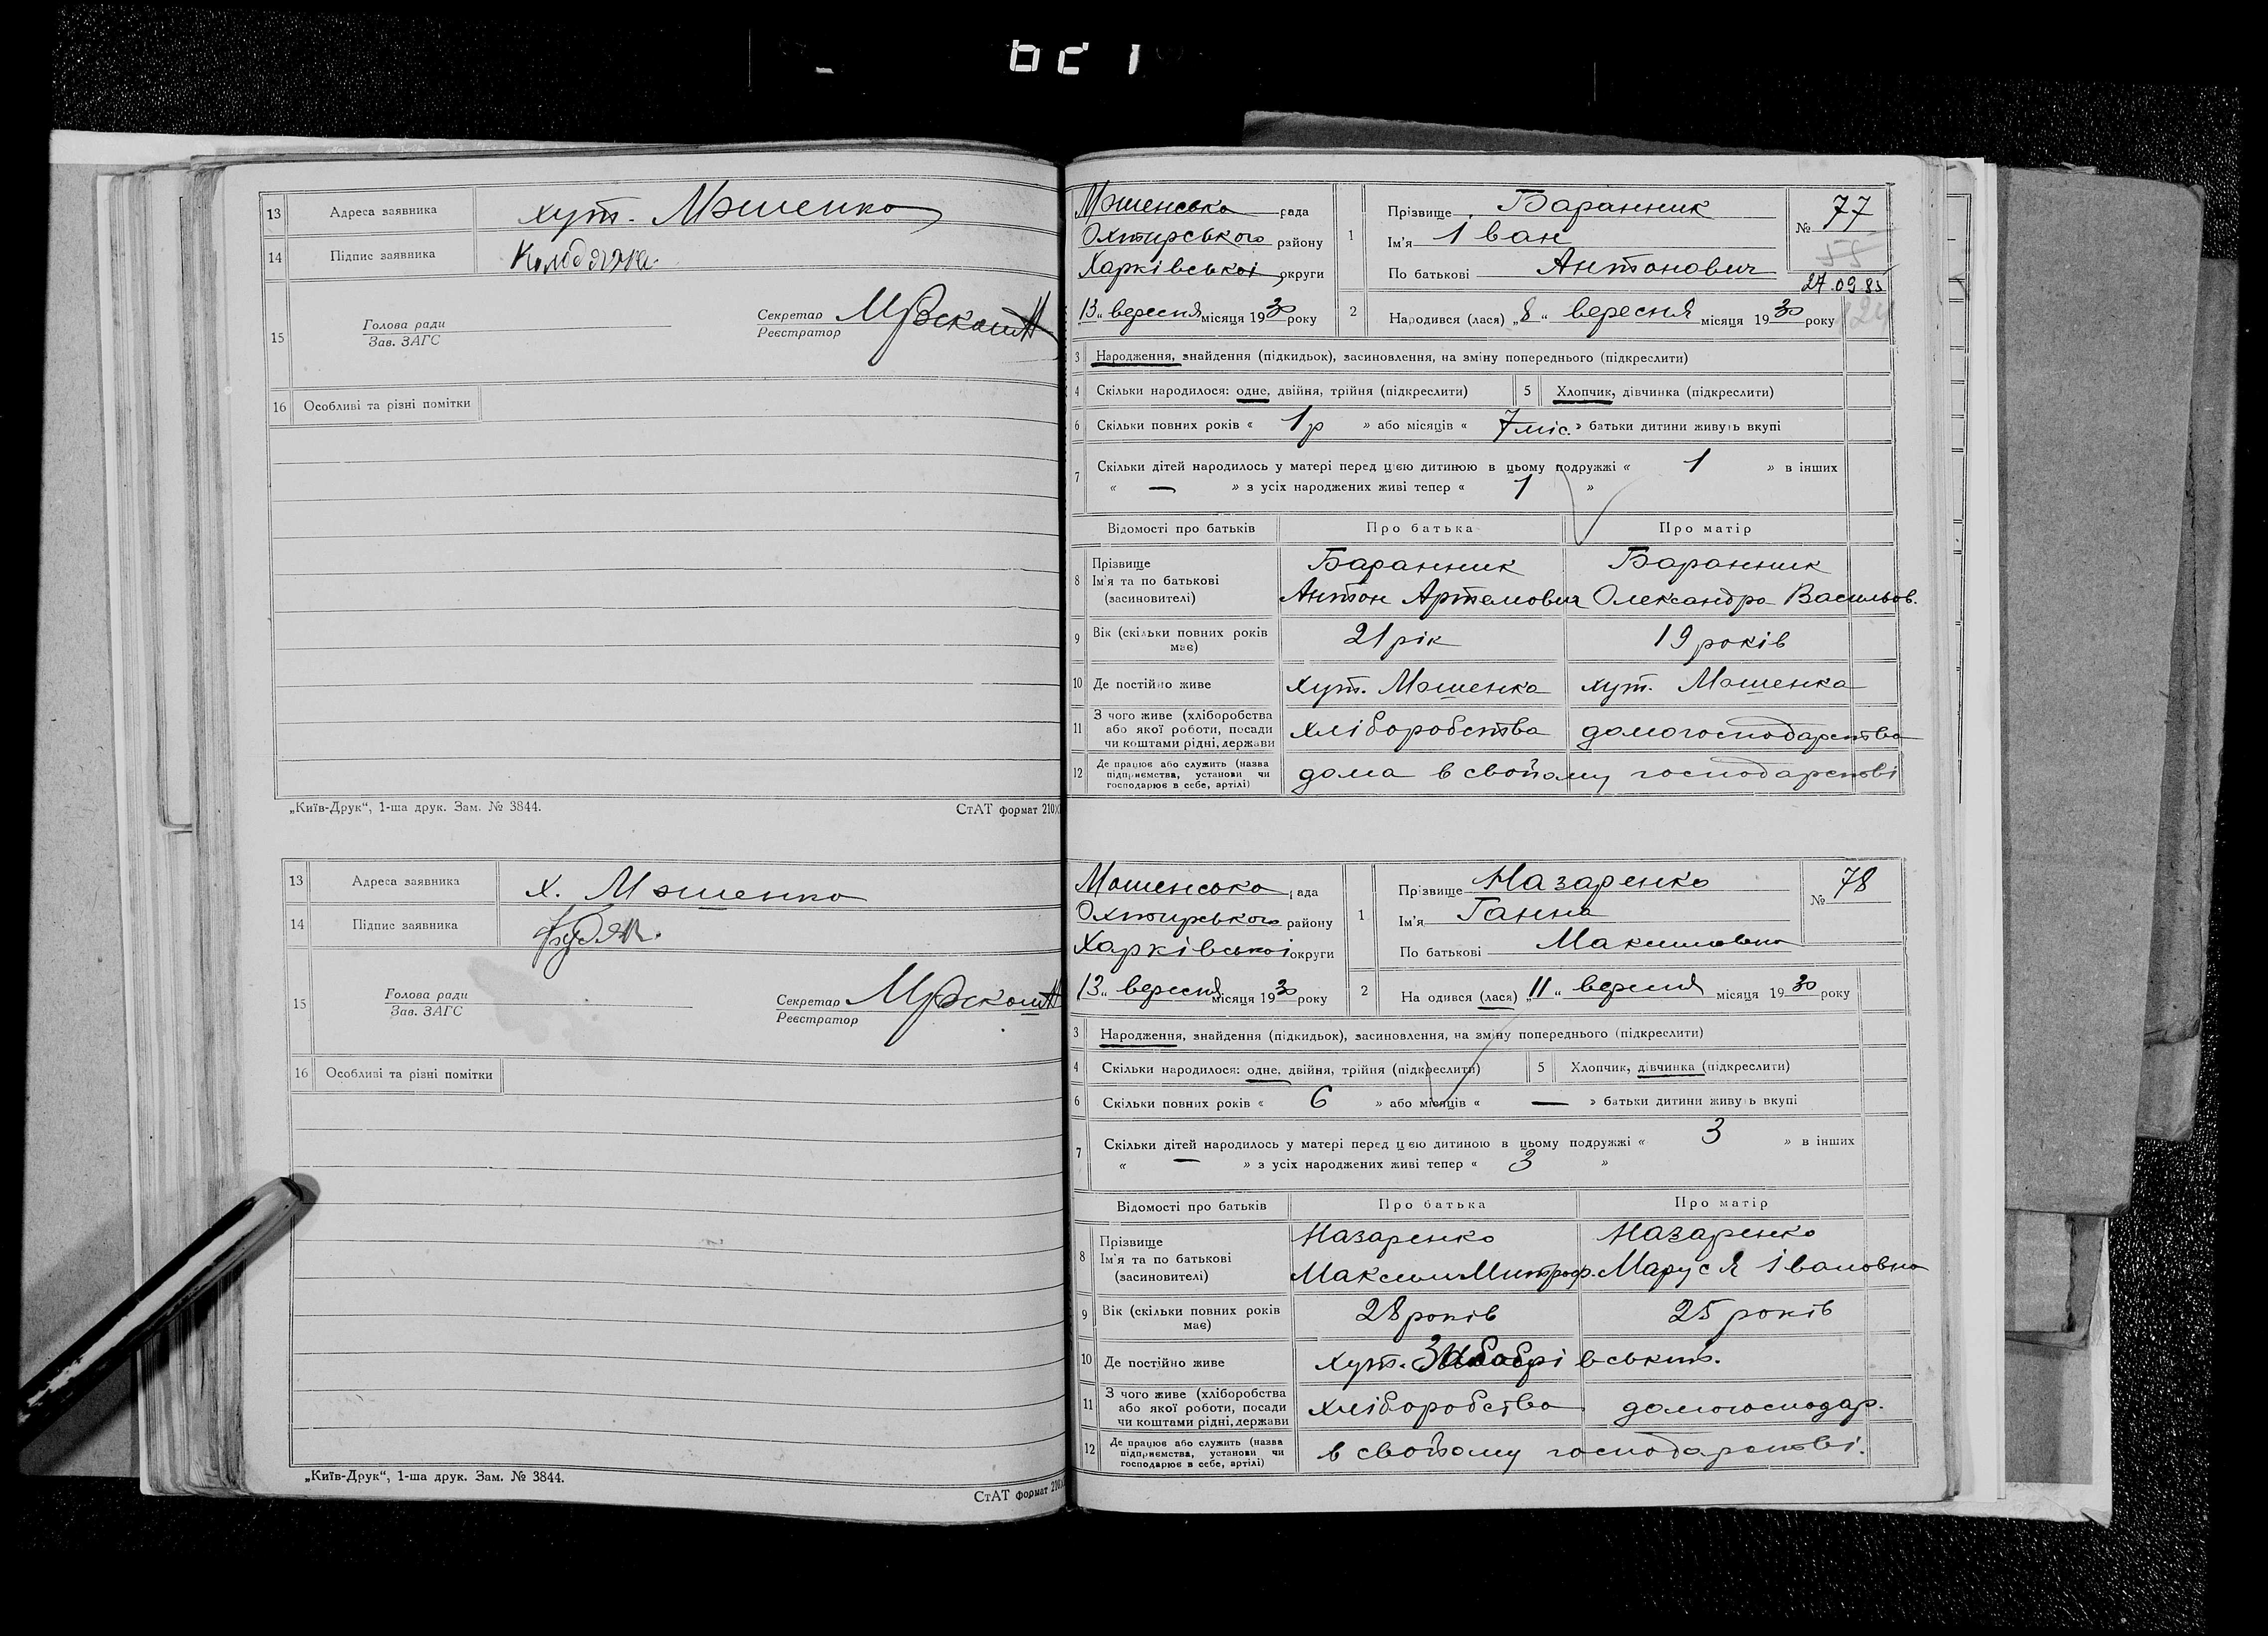 13 Адреса заявника хут. Мошенка
14 Підпис заявника
15 Голова ради
Зав. ЗАГС
Секретар
Реєстратор
16 Особливі та різні помітки
„Київ-Друк“, 1-ша друк. Зам. № 3844.
СтАТ формат 210
13 Адреса заявника х. Мошенка
14 Підпис заявника
15 Голова ради
Зав. ЗАГС
Секретар
Реєстратор
16 Особливі та різні помітки
„Київ-Друк“, 1-ша друк. Зам. № 3844.
СтАТ формат 210
Мошенська рада
Охтирського району
Харківської округи
„13“ вересня місяця 1930 року
1 Прізвище Баранник
Ім'я Іван
По батькові Антонович
№ 77
55
27.09.85
2 Народився (лася) „8“ вересня місяця 1930 року
3 Народження, знайдення (підкидьок), засиновлення, на зміну попереднього (підкреслити)
4 Скільки народилося: одне, двійня, трійня (підкреслити) 5 Хлопчик, дівчинка (підкреслити)
6 Скільки повних років « 1 р » або місяців « 7 міс. » батьки дитини живуть вкупі
7 Скільки дітей народилось у матері перед цією дитиною в цьому подружжі « 1 » в інших
« — » з усіх народжених живі тепер « 1 »
Відомості про батьків Про батька Про матір
8 Прізвище Баранник Баранник
Ім'я та по батькові
(засиновителі) Антон Артемович Олександра Васильов.
9 Вік (скільки повних років має) 21 рік 19 років
10 Де постійно живе хут. Мошенка хут. Мошенка
11 З чого живе (хліборобства
або якої роботи, посади
чи коштами рідні, держави хліборобства домогосподарства
12 Де працює або служить (назва
підприємства, установи чи
господарює в себе, артілі) дома в свойому господарстві
Мошенська рада
Охтирського району
Харківської округи
„13“ вересня місяця 1930 року
1 Прізвище Назаренко
Ім'я Ганна
По батькові Максимовна
№ 78
2 На одився (лася) „11“ вересня місяця 1930 року
3 Народження, знайдення (підкидьок), засиновлення, на зміну попереднього (підкреслити)
4 Скільки народилося: одне, двійня, трійня (підкреслити) 5 Хлопчик, дівчинка (підкреслити)
6 Скільки повних років « 6 » або місяців « — » батьки дитини живуть вкупі
7 Скільки дітей народилось у матері перед цією дитиною в цьому подружжі « 3 » в інших
« — » з усіх народжених живі тепер « 3 »
Відомості про батьків Про батька Про матір
8 Прізвище Назаренко Назаренко
Ім'я та по батькові
(засиновителі) Максим Митроф. Маруся Івановна
9 Вік (скільки повних років має) 28 років 25 років
10 Де постійно живе хут.
11 З чого живе (хліборобства
або якої роботи, посади
чи коштами рідні, держави хліборобства домогосподар.
12 Де працює або служить (назва
підприємства, установи чи
господарює в себе, артілі) в свойому господарстві.